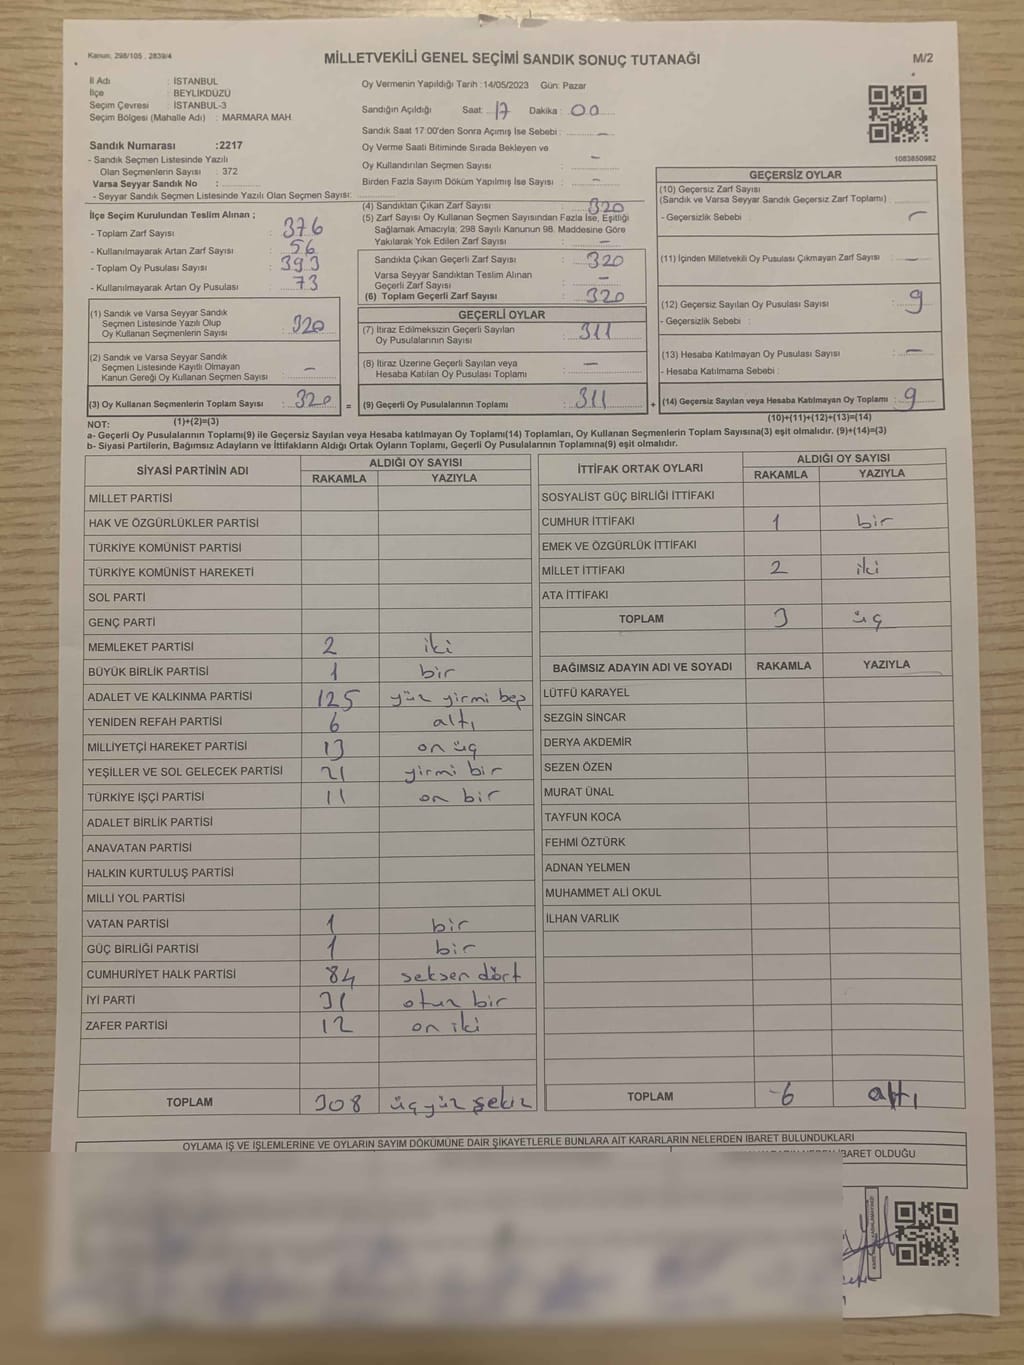 Kanun; 298/105 . 2839/4
MİLLETVEKİLİ GENEL SEÇİMİ SANDIK SONUÇ TUTANAĞI
M/2
İl Adı : İSTANBUL
İlçe : BEYLİKDÜZÜ
Seçim Çevresi : İSTANBUL-3
Seçim Bölgesi (Mahalle Adı) : MARMARA MAH.
Sandık Numarası :2217
- Sandık Seçmen Listesinde Yazılı
Olan Seçmenlerin Sayısı : 372
Varsa Seyyar Sandık No :
- Seyyar Sandık Seçmen Listesinde Yazılı Olan Seçmen Sayısı:
Oy Vermenin Yapıldığı Tarih :14/05/2023 Gün: Pazar
Sandığın Açıldığı Saat: 17 Dakika : 00
Sandık Saat 17:00'den Sonra Açımış İse Sebebi : -
Oy Verme Saati Bitiminde Sırada Bekleyen ve
Oy Kullandırılan Seçmen Sayısı : -
Birden Fazla Sayım Döküm Yapılmış İse Sayısı : -
1083850982
İlçe Seçim Kurulundan Teslim Alınan ;
- Toplam Zarf Sayısı : 376
- Kullanılmayarak Artan Zarf Sayısı : 56
- Toplam Oy Pusulası Sayısı : 393
- Kullanılmayarak Artan Oy Pusulası : 73
(1) Sandık ve Varsa Seyyar Sandık
Seçmen Listesinde Yazılı Olup
Oy Kullanan Seçmenlerin Sayısı : 320
(2) Sandık ve Varsa Seyyar Sandık
Seçmen Listesinde Kayıtlı Olmayan
Kanun Gereği Oy Kullanan Seçmen Sayısı : -
(3) Oy Kullanan Seçmenlerin Toplam Sayısı : 320
(1)+(2)=(3)
(4) Sandıktan Çıkan Zarf Sayısı : 320
(5) Zarf Sayısı Oy Kullanan Seçmen Sayısından Fazla İse, Eşitliği
Sağlamak Amacıyla; 298 Sayılı Kanunun 98. Maddesine Göre
Yakılarak Yok Edilen Zarf Sayısı : -
Sandıkta Çıkan Geçerli Zarf Sayısı : 320
Varsa Seyyar Sandıktan Teslim Alınan
Geçerli Zarf Sayısı : -
(6) Toplam Geçerli Zarf Sayısı : 320
GEÇERLİ OYLAR
(7) İtiraz Edilmeksizin Geçerli Sayılan
Oy Pusulalarının Sayısı : 311
(8) İtiraz Üzerine Geçerli Sayılan veya
Hesaba Katılan Oy Pusulası Toplamı : -
= (9) Geçerli Oy Pusulalarının Toplamı : 311
GEÇERSİZ OYLAR
(10) Geçersiz Zarf Sayısı
(Sandık ve Varsa Seyyar Sandık Geçersiz Zarf Toplamı) :
- Geçersizlik Sebebi : -
(11) İçinden Milletvekili Oy Pusulası Çıkmayan Zarf Sayısı : -
(12) Geçersiz Sayılan Oy Pusulası Sayısı : 9
- Geçersizlik Sebebi :
(13) Hesaba Katılmayan Oy Pusulası Sayısı : -
- Hesaba Katılmama Sebebi :
+ (14) Geçersiz Sayılan veya Hesaba Katılmayan Oy Toplamı : 9
(10)+(11)+(12)+(13)=(14)
NOT:
a- Geçerli Oy Pusulalarının Toplamı(9) ile Geçersiz Sayılan veya Hesaba katılmayan Oy Toplamı(14) Toplamları, Oy Kullanan Seçmenlerin Toplam Sayısına(3) eşit olmalıdır. (9)+(14)=(3)
b- Siyasi Partilerin, Bağımsız Adayların ve İttifakların Aldığı Ortak Oyların Toplamı, Geçerli Oy Pusulalarının Toplamına(9) eşit olmalıdır.
SİYASİ PARTİNİN ADI ALDIĞI OY SAYISI
RAKAMLA YAZIYLA
MİLLET PARTİSİ
HAK VE ÖZGÜRLÜKLER PARTİSİ
TÜRKİYE KOMÜNİST PARTİSİ
TÜRKİYE KOMÜNİST HAREKETİ
SOL PARTİ
GENÇ PARTİ
MEMLEKET PARTİSİ 2 iki
BÜYÜK BİRLİK PARTİSİ 1 bir
ADALET VE KALKINMA PARTİSİ 125 yüz yirmi beş
YENİDEN REFAH PARTİSİ 6 altı
MİLLİYETÇİ HAREKET PARTİSİ 13 on üç
YEŞİLLER VE SOL GELECEK PARTİSİ 21 yirmi bir
TÜRKİYE İŞÇİ PARTİSİ 11 on bir
ADALET BİRLİK PARTİSİ
ANAVATAN PARTİSİ
HALKIN KURTULUŞ PARTİSİ
MİLLİ YOL PARTİSİ
VATAN PARTİSİ 1 bir
GÜÇ BİRLİĞİ PARTİSİ 1 bir
CUMHURİYET HALK PARTİSİ 84 seksen dört
İYİ PARTİ 31 otuz bir
ZAFER PARTİSİ 12 on iki
TOPLAM 308 üçyüz şekiz
İTTİFAK ORTAK OYLARI ALDIĞI OY SAYISI
RAKAMLA YAZIYLA
SOSYALİST GÜÇ BİRLİĞİ İTTİFAKI
CUMHUR İTTİFAKI 1 bir
EMEK VE ÖZGÜRLÜK İTTİFAKI
MİLLET İTTİFAKI 2 iki
ATA İTTİFAKI
TOPLAM 3 üç
BAĞIMSIZ ADAYIN ADI VE SOYADI RAKAMLA YAZIYLA
LÜTFÜ KARAYEL
SEZGİN SİNCAR
DERYA AKDEMİR
SEZEN ÖZEN
MURAT ÜNAL
TAYFUN KOCA
FEHMİ ÖZTÜRK
ADNAN YELMEN
MUHAMMET ALİ OKUL
İLHAN VARLIK
TOPLAM -6 altı
OYLAMA İŞ VE İŞLEMLERİNE VE OYLARIN SAYIM DÖKÜMÜNE DAİR ŞİKAYETLERLE BUNLARA AİT KARARLARIN NELERDEN İBARET BULUNDUKLARI
BARET OLDUĞU